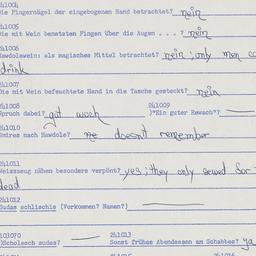 241004
Die Fingernägel der eingebogenen Hand betrachtet? nein
241005
Die mit Wein benetzten Finger über die Augen . . . ? nein
241006
Hawdolewein: als magisches Mittel betrachtet? nein; only men co
drink
241007
Die mit Wein befeuchtete Hand in die Tasche gesteckt? nein
241008 241009
Spruch dabei? gut woch )"Ein guter Rewach"?
241010
Zmires nach Hawdole? me doesn't remember
241011
Weisszeug nähen besonders verpönt? yes; they only sewed for
dead
241012
Sudas schlischis (Vorkommen? Namen?)
103070 241013
)Scholesch sudes? Sonst frühes Abendessen am Schabbes? ya